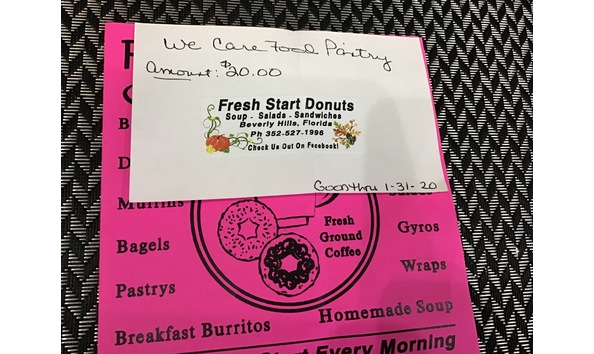 We Care Food Pastry
Amount: $20.00
Fresh Start Donuts
Soup - Salads - Sandwiches
Beverly Hills, Florida
Ph 352-527-1996
Check Us Out On Facebook!
Good thru 1-31-20
Muffins
Fresh
Ground
Coffee
Gyros
Bagels
Wraps
Pastrys
Homemade Soup
Breakfast Burritos
Start Every Morning